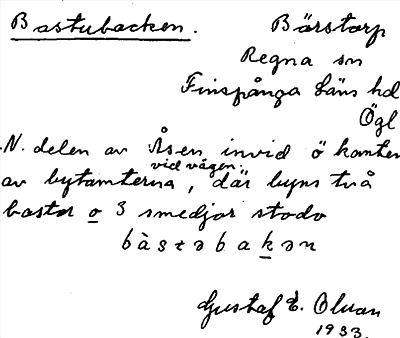 Bastubacken. Bärstorp
Regna sn
Finspånga läns hd
Ögl
N. delen av Åsen invid ö kanten
vid vägen
av bytomterna, där byns två
bastor o 3 smedjor stodo
bàstəbakən
Gustaf E. Olson
1933.